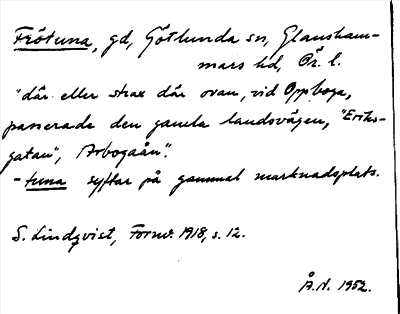 Frötuna, gd, Götlunda sn, Glansham-
mars hd, Ör. l.
"där eller strax där ovan, vid Oppboga,
passerade den gamla landsvägen, "Eriks-
gatan", Arbogaån".
-tuna syftar på gammal marknadsplats.
S. Lindqvist, Fornv. 1918, s. 12.
Å.N. 1952.